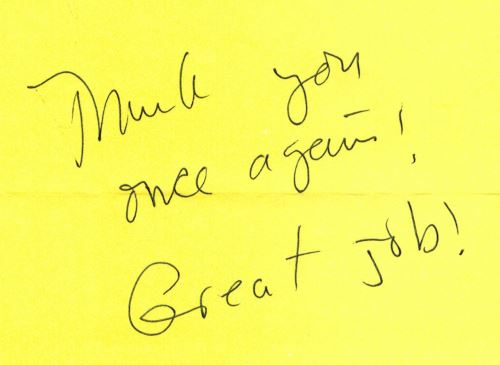 Thank you
once again!
Great job!